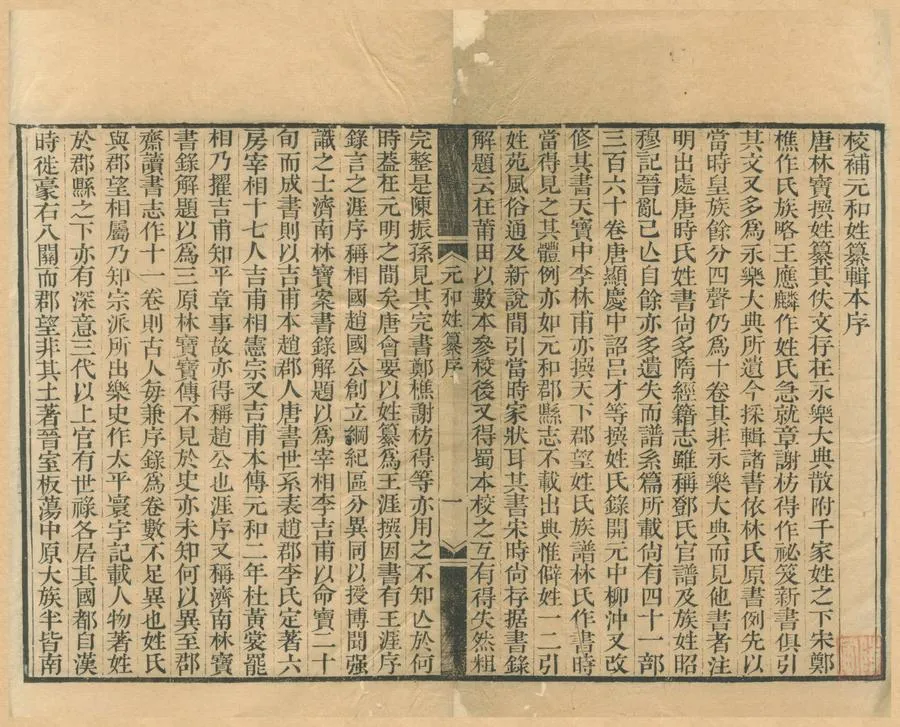 校補元和姓纂輯本序
唐林寶撰姓纂其佚文存在永樂大典散附千家姓之下宋鄭
樵作氏族略王應麟作姓氏急就章謝枋得作祕笈新書俱引
其文又多為永樂大典所遺今採輯諸書依林氏原書例先以
當時皇族餘分四聲仍為十卷其非永樂大典而見他書者注
明出處唐時氏姓書尙多隋經籍志雖稱鄧氏官譜及族姓昭
穆記晉亂己亾自餘亦多遺失而譜系篇所載尙有四十一部
三百六十卷唐顯慶中詔呂才等撰姓氏錄開元中柳沖又改
修其書天寶中李林甫亦撰天下郡望姓氏族譜林氏作書時
當得見之其體例亦如元和郡縣志不載出典惟僻姓一二引
姓苑風俗通及新說間引當時家狀耳其書宋時尙存据書錄
解題云在莆田以數本叅校後又得蜀本校之互有得失然粗
元和姓纂序
一
完整是陳振孫見其完書鄭樵謝枋得等亦用之不知亾於何
時葢在元明之間矣唐會要以姓纂為王涯撰因書有王涯序
錄言之涯序稱相國趙國公創立綱紀區分異同以授博聞强
識之士濟南林寶案書錄解題以為宰相李吉甫以命寶二十
旬而成書則以吉甫本趙郡人唐書世系表趙郡李氏定著六
房宰相十七人吉甫相憲宗又吉甫本傳元和二年杜黃裳罷
相乃擢吉甫知平章事故亦得稱趙公也涯序又稱濟南林寶
書錄解題以為三原林寶寶傳不見於史亦未知何以異至郡
齋讀書志作十一卷則古人每兼序錄為卷數不足異也姓氏
與郡望相屬乃知宗派所出樂史作太平寰宇記載人物著姓
於郡縣之下亦有深意三代以上官有世祿各居其國都自漢
時徙豪右入關而郡望非其土著晉室板蕩中原大族半皆南